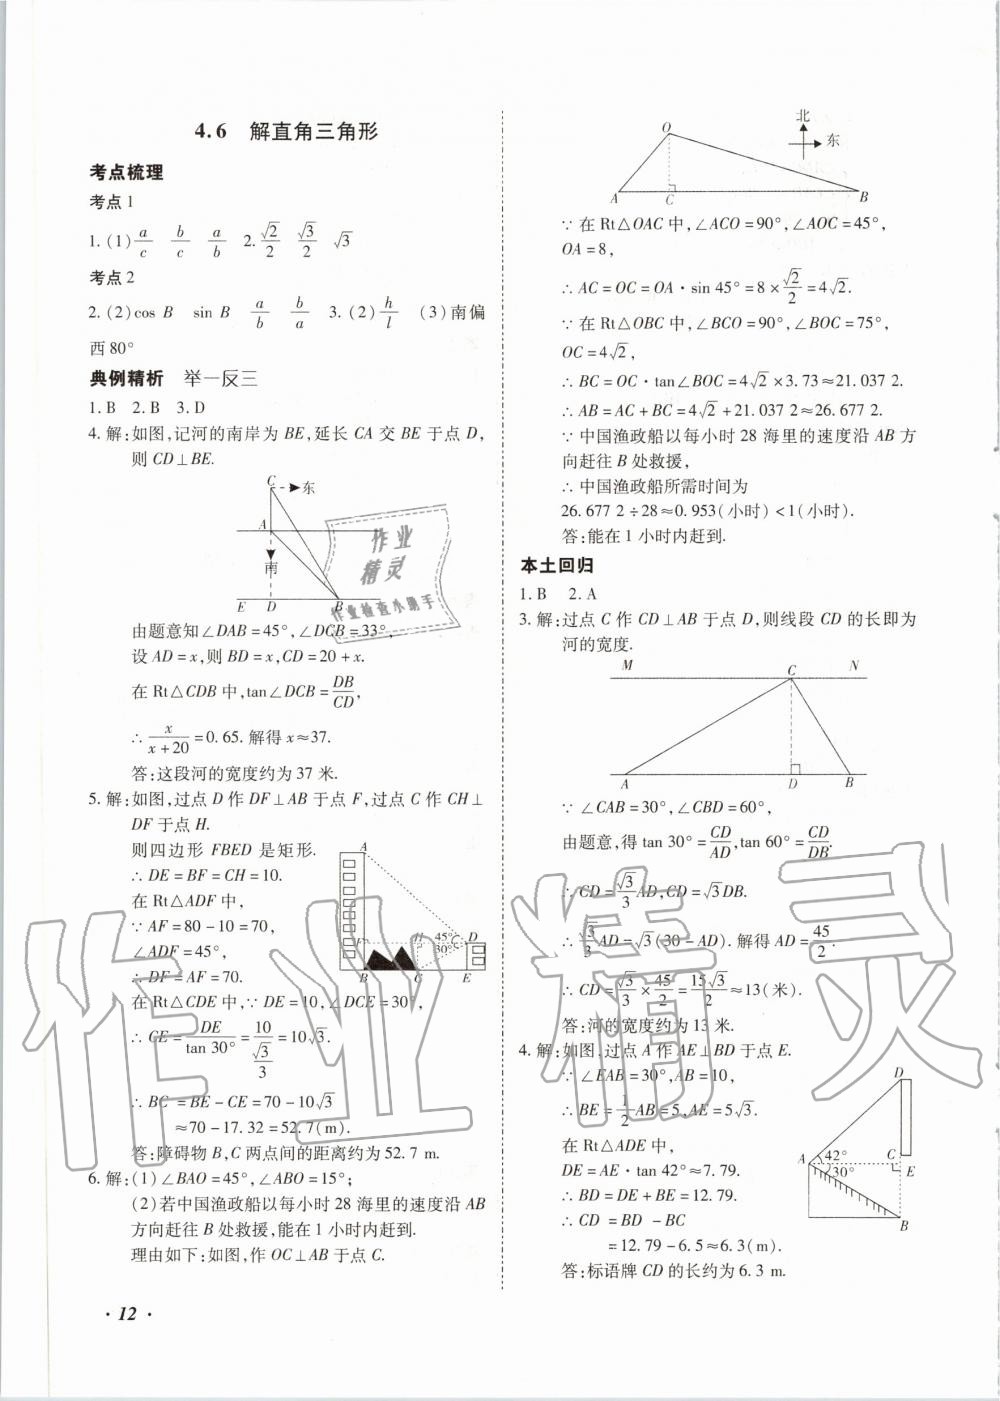 4.6 解直角三角形
考点梳理
考点 1
1. (1) a/c b/c a/b 2. √2/2 √3/2 √3
考点 2
2. (2) cos B sin B a/b b/a 3. (2) h/l (3) 南偏
西 80°
典例精析 举一反三
1. B 2. B 3. D
4. 解:如图,记河的南岸为 BE,延长 CA 交 BE 于点 D,
则 CD⊥BE.
C 东
A
南
E D B
由题意知∠DAB=45°,∠DCB=33°,
设 AD=x,则 BD=x,CD=20+x.
在 Rt△CDB 中,tan∠DCB=DB/CD,
∴ x/(x+20)=0.65. 解得 x≈37.
答:这段河的宽度约为 37 米.
5. 解:如图,过点 D 作 DF⊥AB 于点 F,过点 C 作 CH⊥
DF 于点 H.
则四边形 FBED 是矩形.
∴ DE=BF=CH=10.
在 Rt△ADF 中,
∵ AF=80-10=70,
∠ADF=45°,
∴ DF=AF=70.
A
F H 45° D
30°
B C E
在 Rt△CDE 中,∵ DE=10,∠DCE=30°,
∴ CE=DE/tan 30°=10/(√3/3)=10√3.
∴ BC=BE-CE=70-10√3
≈70-17.32=52.7(m).
答:障碍物 B,C 两点间的距离约为 52.7 m.
6. 解:(1)∠BAO=45°,∠ABO=15°;
(2)若中国渔政船以每小时 28 海里的速度沿 AB
方向赶往 B 处救援,能在 1 小时内赶到.
理由如下:如图,作 OC⊥AB 于点 C.
· 12 ·
北
东
O
A C B
∵ 在 Rt△OAC 中,∠ACO=90°,∠AOC=45°,
OA=8,
∴ AC=OC=OA·sin 45°=8×√2/2=4√2.
∵ 在 Rt△OBC 中,∠BCO=90°,∠BOC=75°,
OC=4√2,
∴ BC=OC·tan∠BOC=4√2×3.73≈21.037 2.
∴ AB=AC+BC=4√2+21.037 2≈26.677 2.
∵ 中国渔政船以每小时 28 海里的速度沿 AB 方
向赶往 B 处救援,
∴ 中国渔政船所需时间为
26.677 2÷28≈0.953(小时)<1(小时).
答:能在 1 小时内赶到.
本土回归
1. B 2. A
3. 解:过点 C 作 CD⊥AB 于点 D,则线段 CD 的长即为
河的宽度.
M C N
A D B
∵ ∠CAB=30°,∠CBD=60°,
由题意,得 tan 30°=CD/AD,tan 60°=CD/DB.
∴ CD=√3/3 AD,CD=√3DB.
∴ √3/3 AD=√3(30-AD). 解得 AD=45/2.
∴ CD=√3/3×45/2=15√3/2≈13(米).
答:河的宽度约为 13 米.
4. 解:如图,过点 A 作 AE⊥BD 于点 E.
∵ ∠EAB=30°,AB=10,
∴ BE=1/2 AB=5,AE=5√3.
在 Rt△ADE 中,
DE=AE·tan 42°≈7.79.
∴ BD=DE+BE=12.79.
∴ CD=BD-BC
=12.79-6.5≈6.3(m).
答:标语牌 CD 的长约为 6.3 m.
D
A 42° C
30° E
B
作业
精灵
作业检查小助手
作业精灵